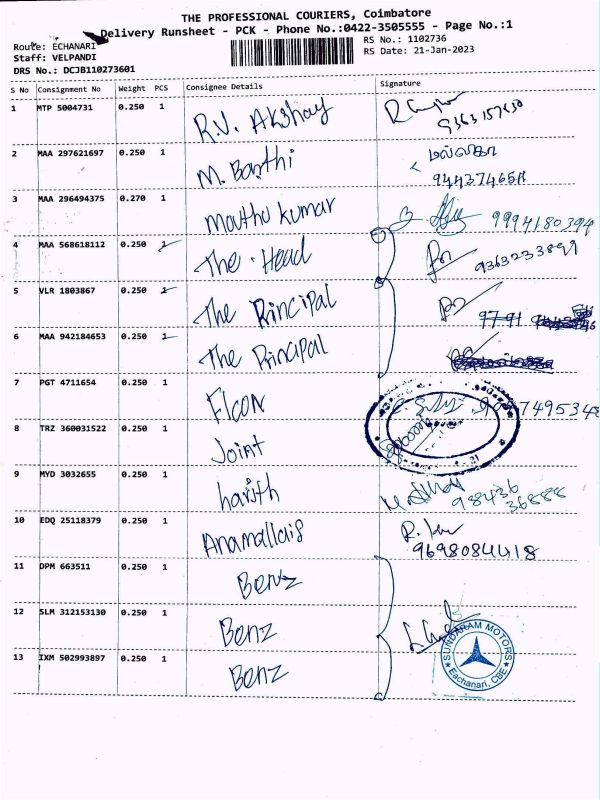 THE PROFESSIONAL COURIERS, Coimbatore
Delivery Runsheet - PCK - Phone No.:0422-3505555 - Page No.:1
Route: ECHANARI
RS No.: 1102736
Staff: VELPANDI
RS Date: 21-Jan-2023
DRS No.: DCJB110273601
S No Consignment No Weight PCS Consignee Details Signature
1 MTP 5004731 0.250 1 R.V. Akshay
9363157830
2 MAA 297621697 0.250 1 M. Barthi
94437465
3 MAA 296494375 0.270 1 Mouthu kumar 9994180394
4 MAA 568618112 0.250 1 The Head 9363233899
5 VLR 1803867 0.250 1 The Principal 9791
6 MAA 942184653 0.250 1 The Principal
7 PGT 4711654 0.250 1 Flcon 7495348
8 TRZ 360031522 0.250 1 Joint
9 MYD 3032655 0.250 1 harith 98436
36888
10 EDQ 25118379 0.250 1 Anamallais R.
9698084418
11 DPM 663511 0.250 1 Benz
12 SLM 312153130 0.250 1 Benz
13 IXM 502993897 0.250 1 Benz
SUNDARAM MOTORS
Eachanari, CBE